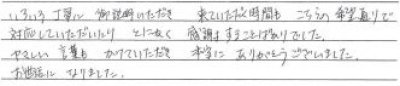 いろいろ丁寧に御説明いただき 来ていただく時間も こちらの希望通りで
対応していただいたり とにかく 感謝することばかりでした。
やさしい言葉も かけていただき 本当に ありがとうございました。
お世話に なりました。